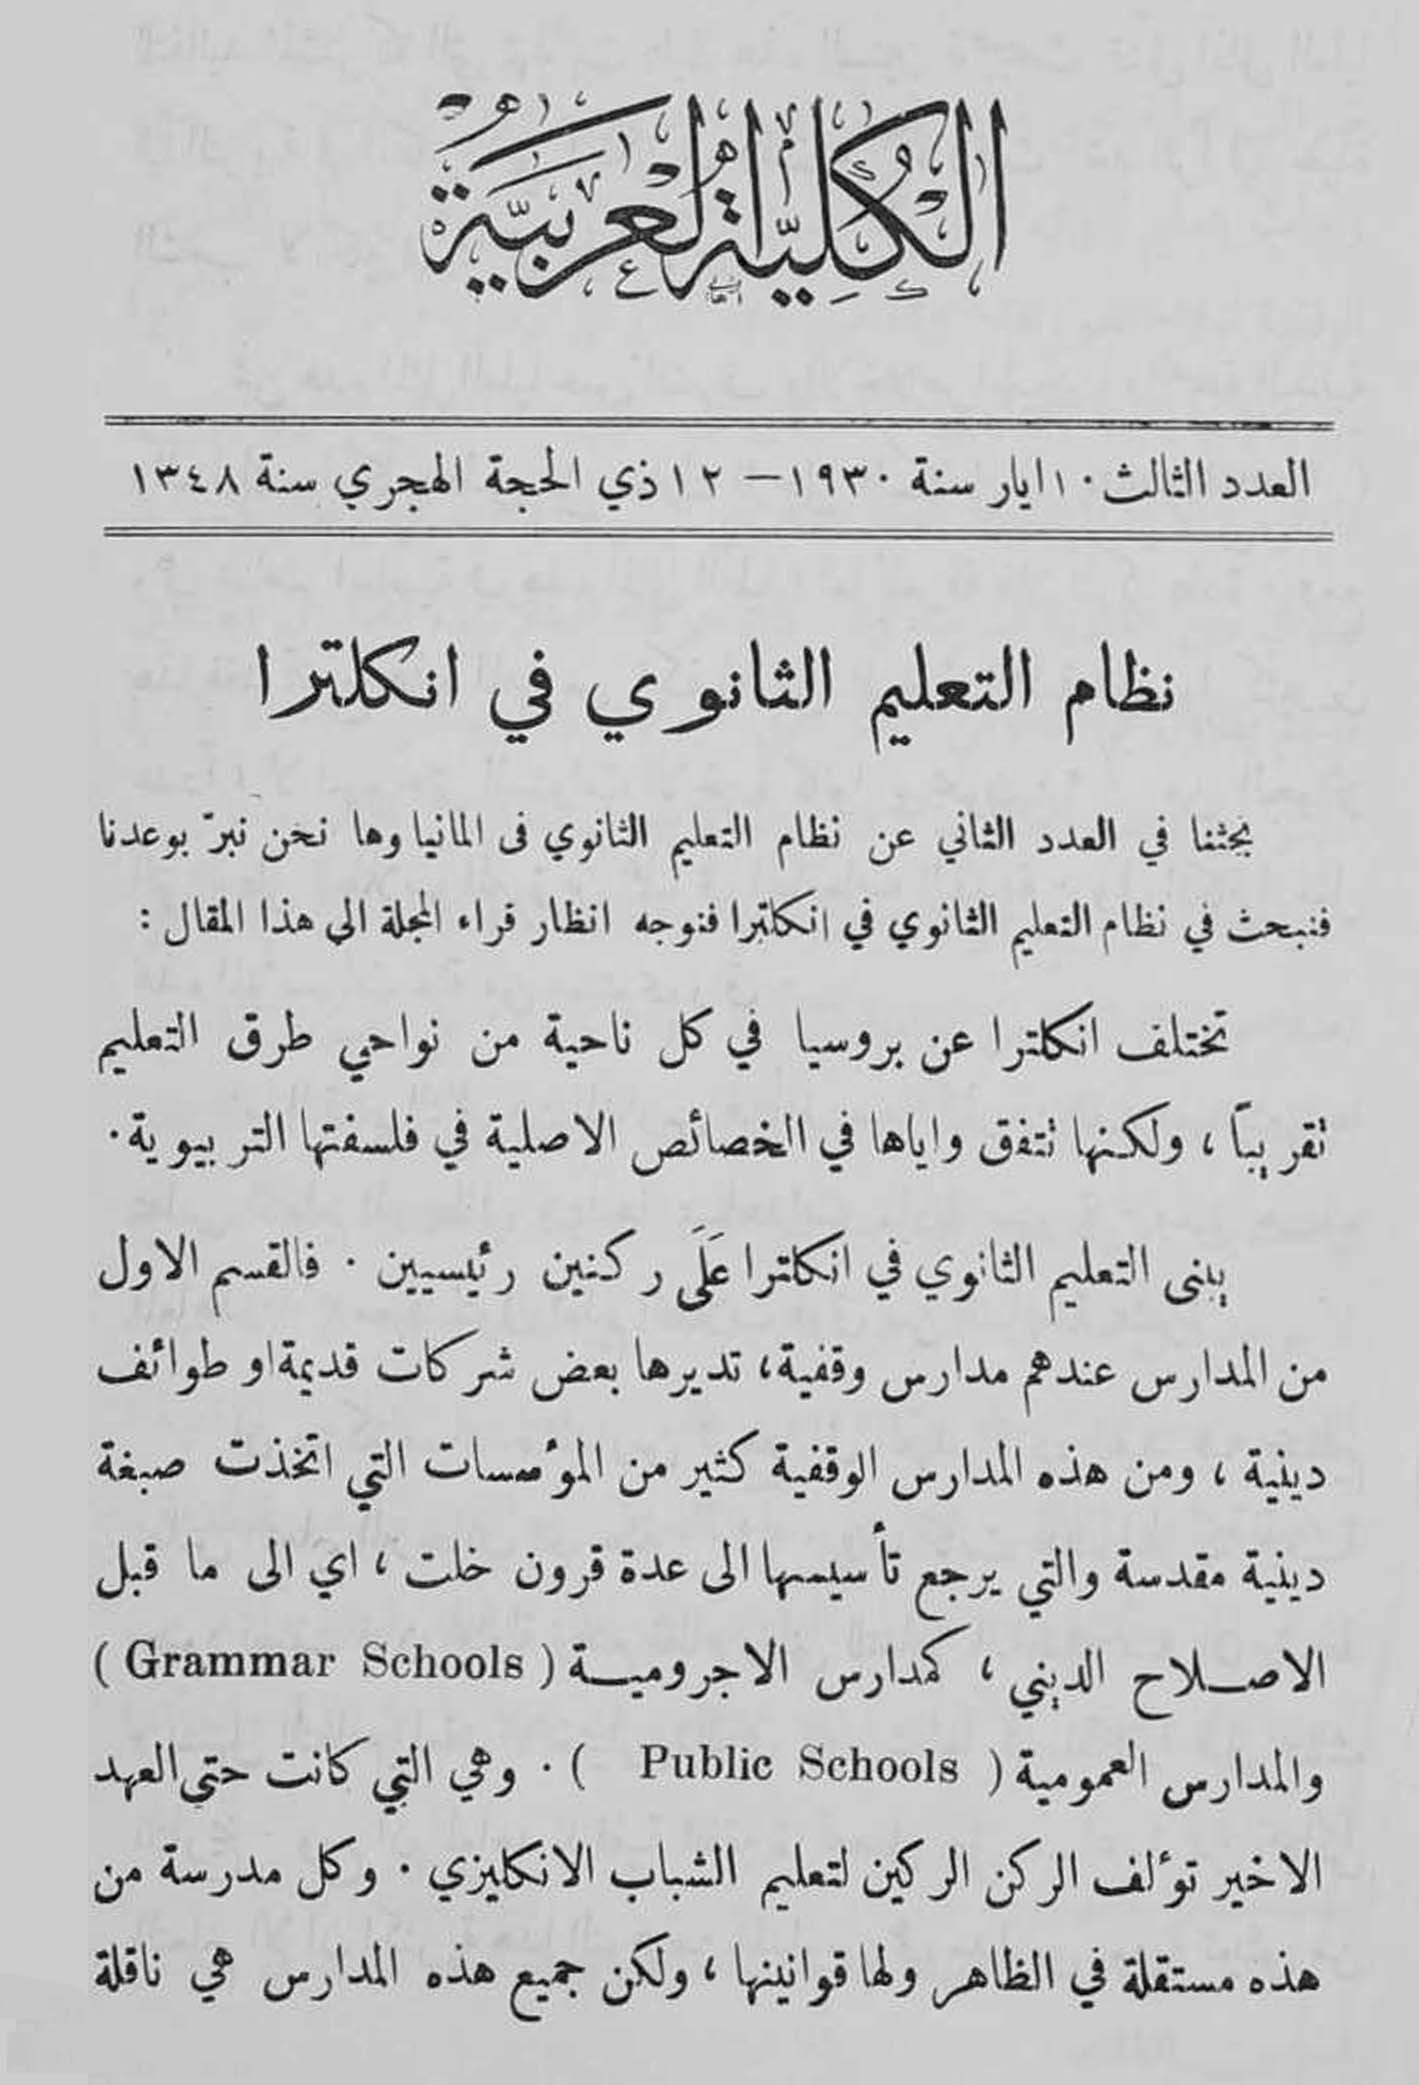 الكُلِيَّة العَرَبيَّة
العدد الثالث ١٠ ايار سنة ١٩٣٠ — ١٢ ذي الحجة الهجري سنة ١٣٤٨
نظام التعليم الثانوي في انكلترا
بحثنا في العدد الثاني عن نظام التعليم الثانوي فى المانيا وها نحن نبرّ بوعدنا
فنبحث في نظام التعليم الثانوي في انكلترا فنوجه انظار قراء المجلة الى هذا المقال :
تختلف انكلترا عن بروسيا في كل ناحية من نواحي طرق التعليم
تقريباً ، ولكنها تتفق واياها في الخصائص الاصلية في فلسفتها التربيوية .
يبنى التعليم الثانوي في انكلترا عَلَى ركنين رئيسيين . فالقسم الاول
من المدارس عندهم مدارس وقفية ، تديرها بعض شركات قديمة او طوائف
دينية ، ومن هذه المدارس الوقفية كثير من المؤسسات التي اتخذت صبغة
دينية مقدسة والتي يرجع تأسيسها الى عدة قرون خلت ، اي الى ما قبل
الاصلاح الديني ، كمدارس الاجرومية ( Grammar Schools )
والمدارس العمومية ( Public Schools ) . وهي التي كانت حتى العهد
الاخير تؤلف الركن الركين لتعليم الشباب الانكليزي . وكل مدرسة من
هذه مستقلة في الظاهر ولها قوانينها ، ولكن جميع هذه المدارس هي ناقلة